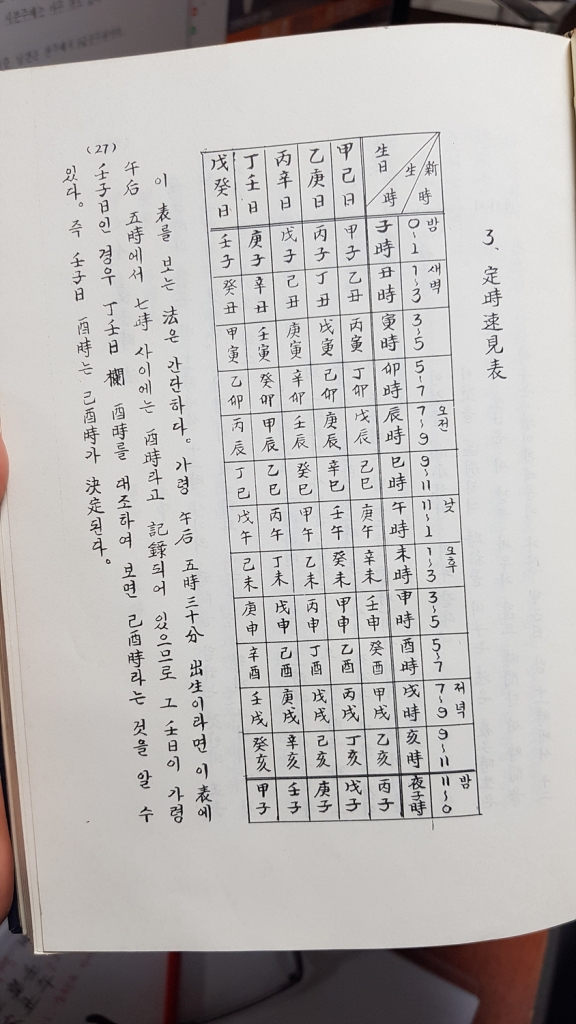 3、定時速見表
新時 밤 0~1 새벽 1~3 3~5 5~7 오전 7~9 9~11 낮 11~1 오후 1~3 3~5 5~7 저녁 7~9 9~11 밤 11~0
生時 子時 丑時 寅時 卯時 辰時 巳時 午時 未時 申時 酉時 戌時 亥時 夜子時
生日
甲己日 甲子 乙丑 丙寅 丁卯 戊辰 己巳 庚午 辛未 壬申 癸酉 甲戌 乙亥 丙子
乙庚日 丙子 丁丑 戊寅 己卯 庚辰 辛巳 壬午 癸未 甲申 乙酉 丙戌 丁亥 戊子
丙辛日 戊子 己丑 庚寅 辛卯 壬辰 癸巳 甲午 乙未 丙申 丁酉 戊戌 己亥 庚子
丁壬日 庚子 辛丑 壬寅 癸卯 甲辰 乙巳 丙午 丁未 戊申 己酉 庚戌 辛亥 壬子
戊癸日 壬子 癸丑 甲寅 乙卯 丙辰 丁巳 戊午 己未 庚申 辛酉 壬戌 癸亥 甲子
이 表를 보는 法은 간단하다。 가령 午后 五時三十分 出生이라면 이 表에
午后 五時에서 七時 사이에는 酉時라고 記錄되어 있으므로 그 壬日이 가령
壬子日인 경우 丁壬日 欄 酉時를 대조하여 보면 己酉時라는 것을 알 수
있다。 즉 壬子日 酉時는 己酉時가 決定된다。
(27)